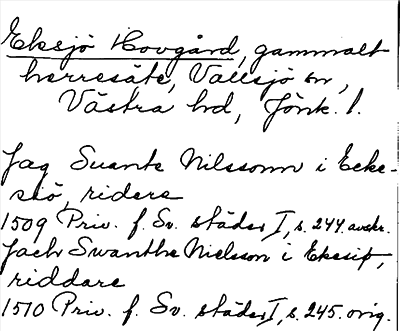 Eksjö Hovgård, gammalt
herresäte, Vallsjö sn,
Västra hd, Jönk. l.
Jag Suante Nilssonn i Ecke-
siö, ridere
1509 Priv. f. Sv. städer I, s. 244. avskr.
Jach Swanthe Nielsson i Ekesiø,
riddare
1510 Priv. f. Sv. städer I, s. 245. orig.